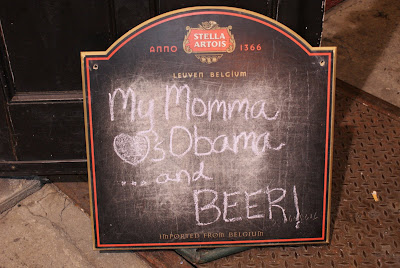 STELLA
ARTOIS
ANNO 1366
LEUVEN BELGIUM
My Momma
♥s Obama
...and
BEER!
IMPORTED FROM BELGIUM